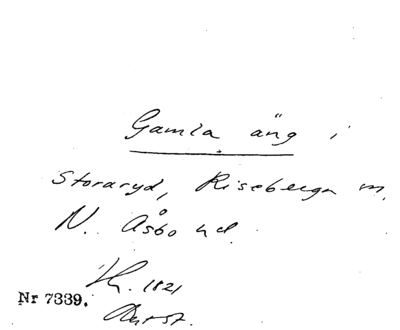 Gamla äng i
Storaryd, Riseberga m.
N. Åsbo hd.
1821
Nr 7339.